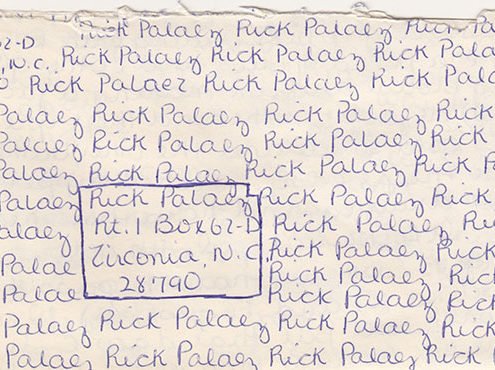 Rick Palaez Rick Palaez Rick Palaez
62-D
N.C. Rick Palaez Rick Palaez Rick Pala
Rick Palaez Rick Palaez Rick Pala
Palaez Rick Palaez Rick Palaez Rick
Palaez Rick Palaez Rick Palaez Rick
Palaez Rick Palaez Rick Palaez Rick P
Palaez Rick Palaez Rick Palaez Rick
alaez Rt. 1 Box 62-D Rick Palaez Ru
Palae Zirconia, N.C. Rick Palaez Rick
Palae 28790 Rick Palaez, Rick
Rick Palaez Rick
Palaez Rick Palaez Rick Palaez Rick
Palaez Rick Palaez Rick Palaez Rick